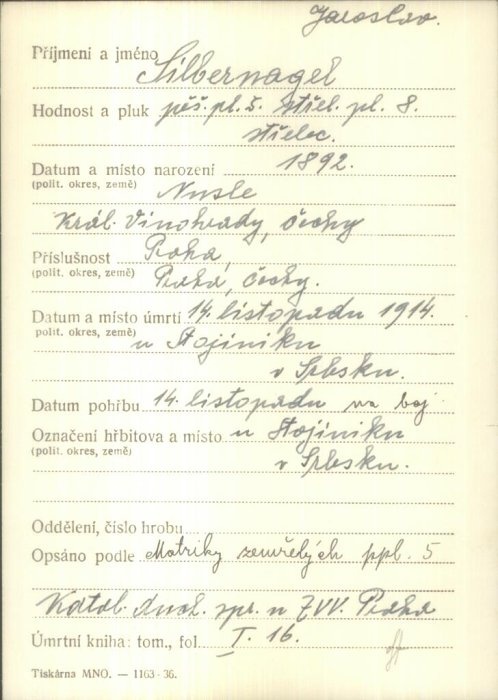 Jaroslav.
Příjmení a jméno Silbernagel
Hodnost a pluk pěš. pl. 5. střel. pl. 8.
střelec.
Datum a místo narození 1892.
(polit. okres, země) Nusle
Král. Vinohrady, Čechy
Příslušnost Praha,
(polit. okres, země) Praha, Čechy.
Datum a místo úmrtí 14. listopadu 1914.
polit. okres, země) u Stojiniku
v Srbsku.
Datum pohřbu 14. listopadu na boj
Označení hřbitova a místo u Stojiniku
(polit. okres, země) v Srbsku.
Oddělení, číslo hrobu
Opsáno podle Matriky zemřelých ppl. 5
Katol. duch. spr. u ZVV. Praha
Úmrtní kniha: tom., fol. I. 16.
Tiskárna MNO. — 1163-36.